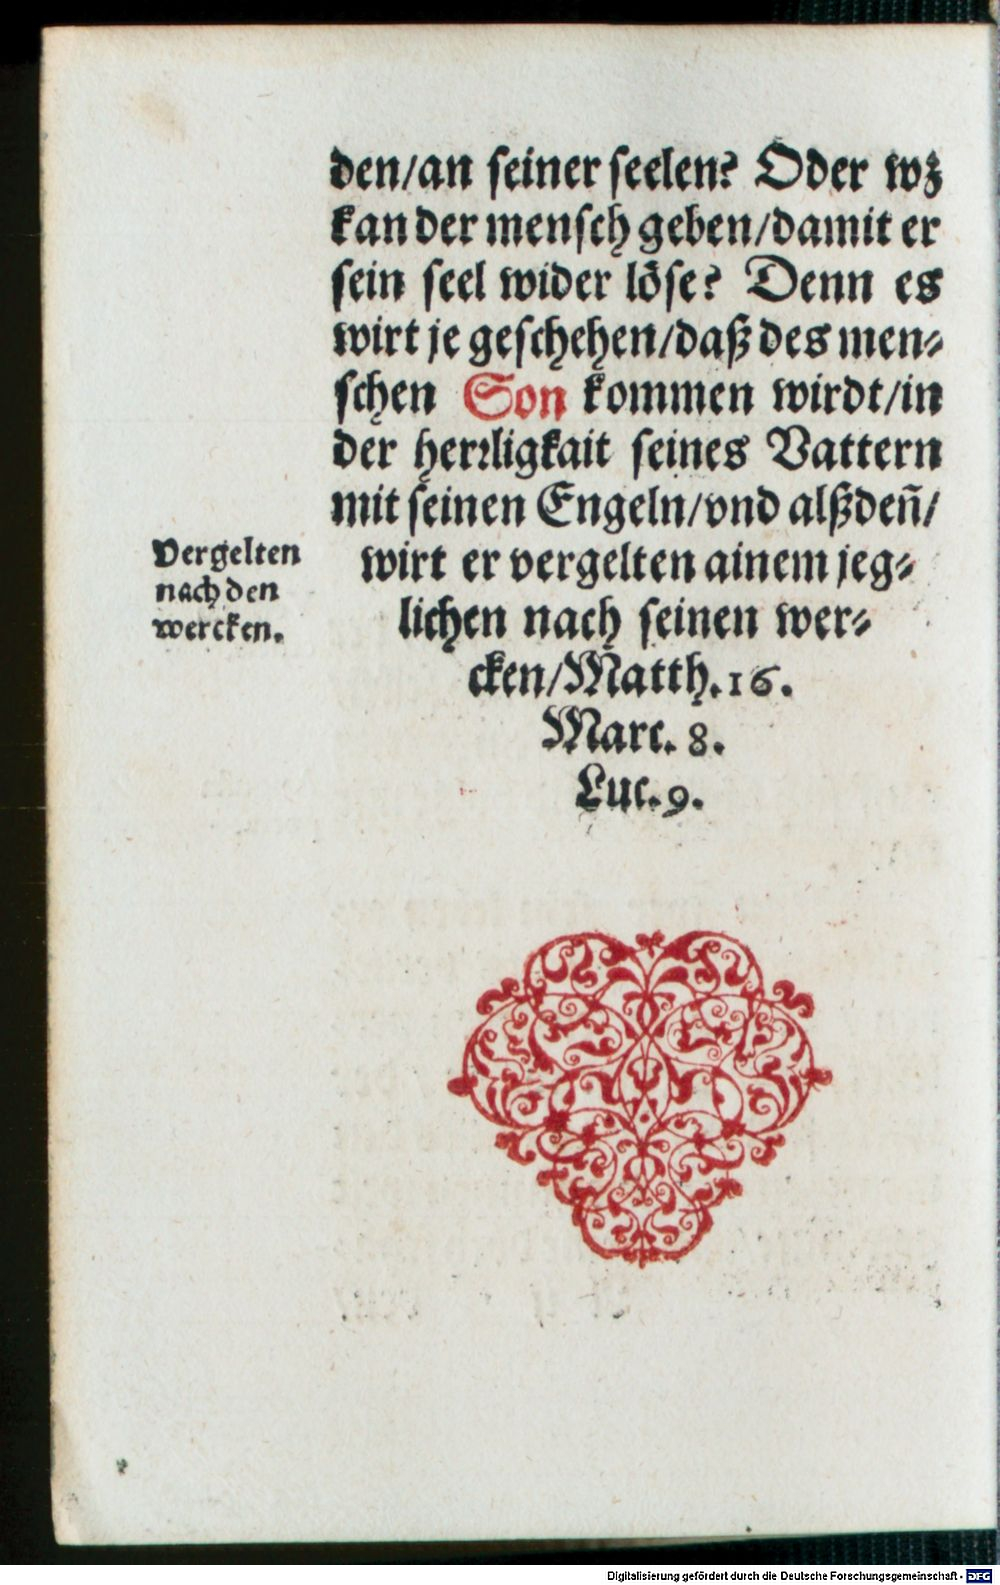 den/an seiner seelen? Oder wz
kan der mensch geben/damit er
sein seel wider löse? Denn es
wirt je geschehen/daß des men⸗
schen Son kommen wirdt/in
der herꝛligkait seines Vattern
mit seinen Engeln/vnd alßdeñ/
wirt er vergelten ainem jeg⸗
lichen nach seinen wer⸗
cken/Matth.16.
Marc. 8.
Luc.9.
Vergelten
nach den
wercken.
Digitalisierung gefördert durch die Deutsche Forschungsgemeinschaft - DFG